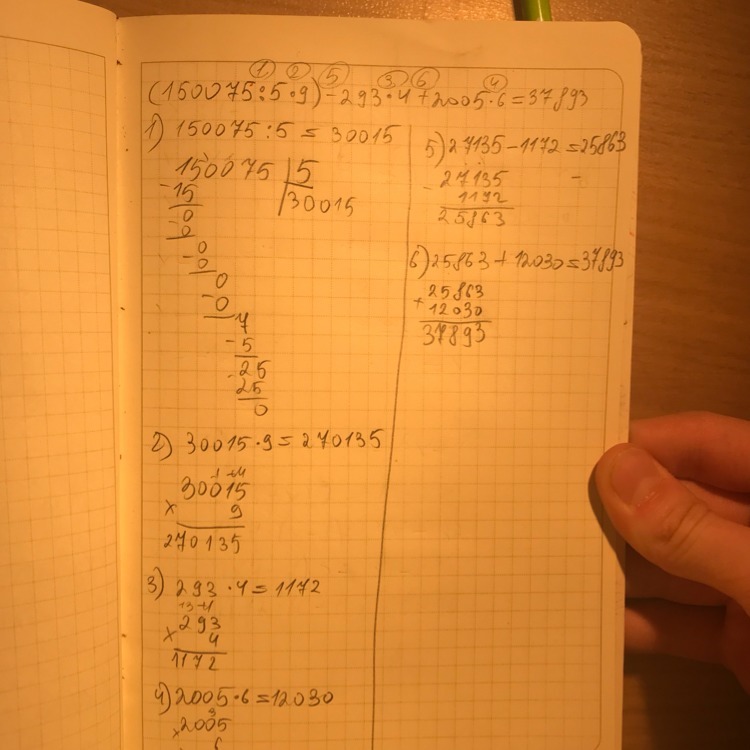 1 2 5 3 6 4
(150075:5·9)-293·4+2005·6=37893
1) 150075:5=30015
150075 | 5
-15 30015
0
-0
0
-0
0
-0
7
-5
25
-25
0
2) 30015·9=270135
1 +4
30015
× 9
270135
3) 293·4=1172
+3 +1
293
× 4
1172
4) 2005·6=12030
3
×2005
6
5) 27135-1172=25863
-27135
1172
25863
6) 25863+12030=37893
25863
+12030
37893